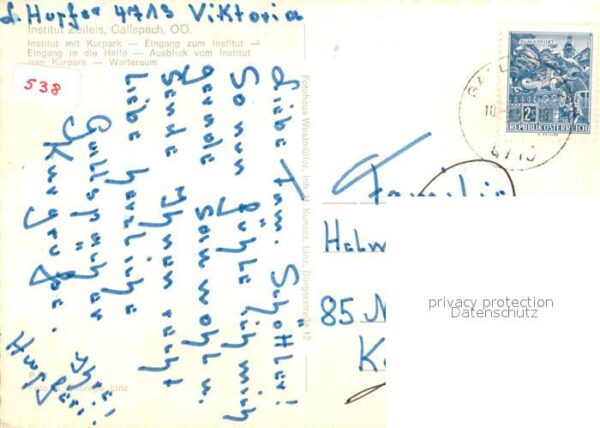 L. Hupfer 4713 Viktoria
Institut Zeileis, Gallspach, OÖ.
Institut mit Kurpark — Eingang zum Institut —
Eingang in die Halle — Ausblick vom Institut
zum Kurpark — Warteraum
538
Liebe Fam. Schottler!
So nun fühle ich mich
gerade sauwohl u.
sende Ihnen recht
liebe herzliche
Gallspacher
Kurgrüße.
Ihre
Fotohaus Westmüller, Inh. H. Kunasz, Linz, Bürgerstraße 12
KLAGENFURT
2S
REPUBLIK ÖSTERREICH
4713
Familie
85 N
privacy protection
Datenschutz